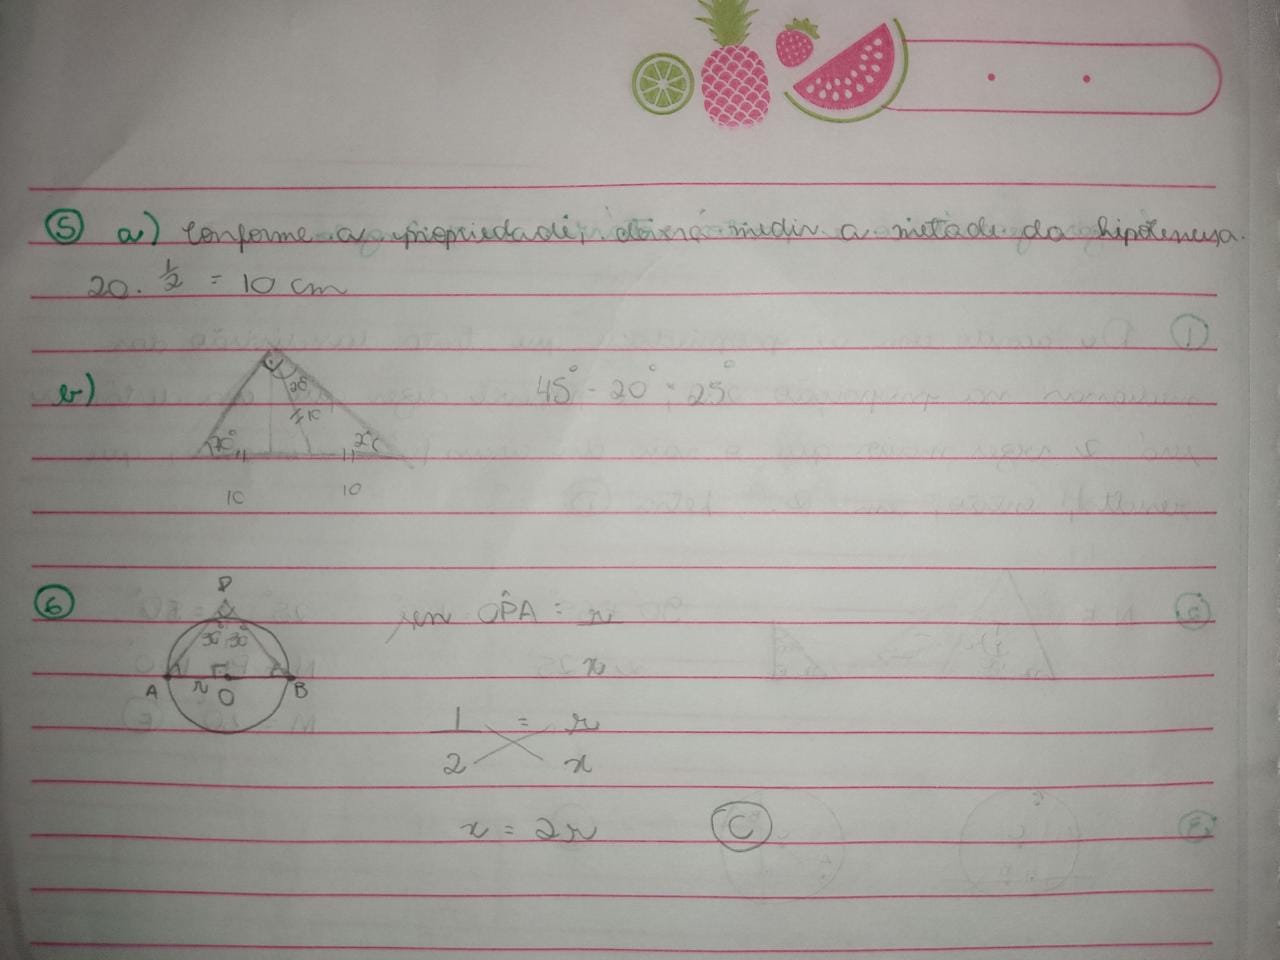 5 a) Conforme a propriedade, deverá medir a metade da hipotenusa.
20 . 1/2 = 10 cm
b) 45° - 20° = 25°
25°
10
70°
10
10
6
P
30° 30°
A r O B
sen OP̂A = r/x
1/2 = r/x
x = 2r C